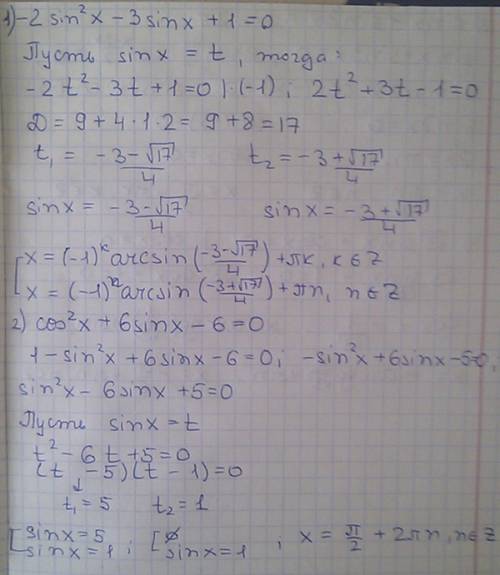 1) -2 sin²x - 3 sinx + 1 = 0
Пусть sinx = t, тогда:
-2t² - 3t + 1 = 0 | · (-1) ; 2t² + 3t - 1 = 0
D = 9 + 4 · 1 · 2 = 9 + 8 = 17
t₁ = (-3 - √17)/4 t₂ = (-3 + √17)/4
sinx = (-3 - √17)/4 sinx = (-3 + √17)/4
[ x = (-1)ᵏ arcsin ((-3 - √17)/4) + πk, k ∈ Z
x = (-1)ⁿ arcsin ((-3 + √17)/4) + πn, n ∈ Z
2) cos²x + 6 sinx - 6 = 0
1 - sin²x + 6 sinx - 6 = 0 ; -sin²x + 6 sinx - 5 = 0;
sin²x - 6 sinx + 5 = 0
Пусть sinx = t
t² - 6t + 5 = 0
(t - 5)(t - 1) = 0
↓
t₁ = 5 t₂ = 1
[ sinx = 5 ; [ ∅ ; x = π/2 + 2πn, n ∈ Z
sinx = 1 sinx = 1